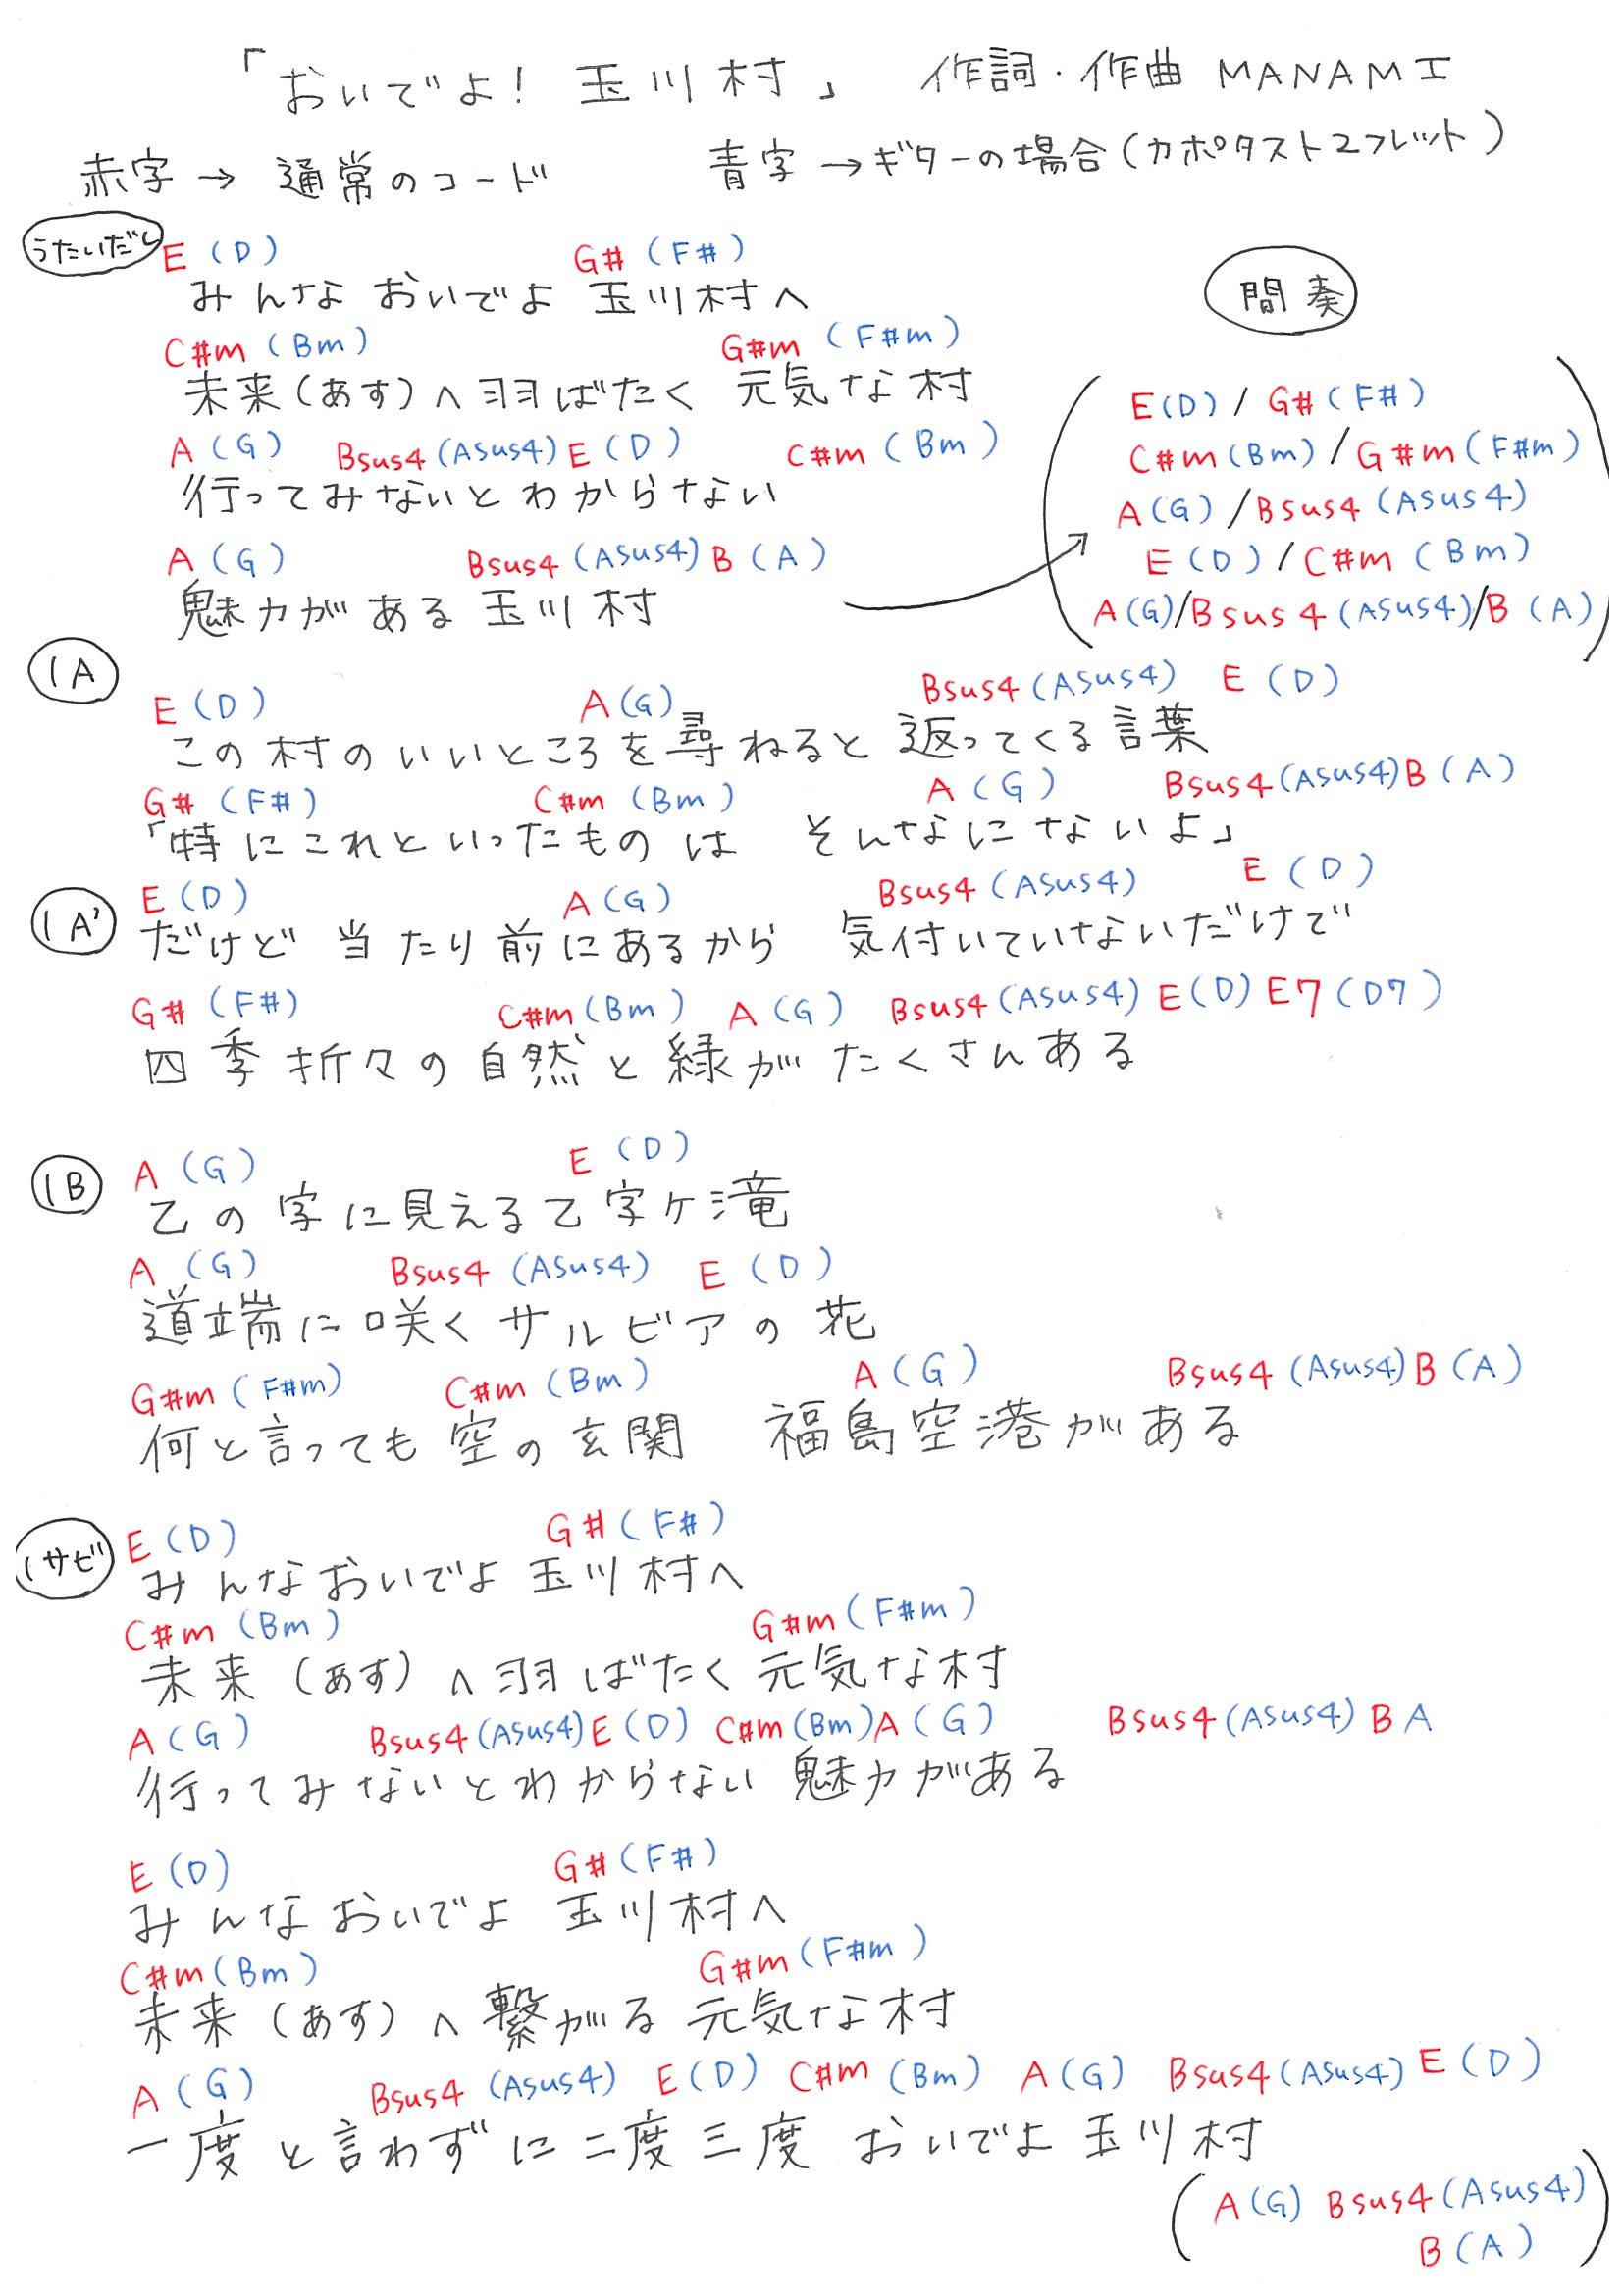 「おいでよ！玉川村」 作詞・作曲 MANAMI
赤字→通常のコード 青字→ギターの場合(カポタスト2フレット)
うたいだし
E (D) G# (F#)
みんな おいでよ 玉川村へ
C#m (Bm) G#m (F#m)
未来(あす)へ羽ばたく 元気な村
A (G) Bsus4 (Asus4) E (D) C#m (Bm)
行ってみないとわからない
A (G) Bsus4 (Asus4) B (A)
魅力がある 玉川村
間奏
E(D) / G# (F#)
C#m (Bm) / G#m (F#m)
A (G) / Bsus4 (Asus4)
E (D) / C#m (Bm)
A(G)/Bsus4 (Asus4)/B (A)
1A
E (D) A (G) Bsus4 (Asus4) E (D)
この村のいいところを尋ねると 返ってくる言葉
G# (F#) C#m (Bm) A (G) Bsus4 (Asus4) B (A)
「特にこれといったものは そんなにないよ」
1A'
E (D) A (G) Bsus4 (Asus4) E (D)
だけど 当たり前にあるから 気付いていないだけで
G# (F#) C#m (Bm) A (G) Bsus4 (Asus4) E (D) E7 (D7)
四季折々の自然と緑がたくさんある
1B
A (G) E (D)
乙の字に見える乙字ケ滝
A (G) Bsus4 (Asus4) E (D)
道端に咲くサルビアの花
G#m (F#m) C#m (Bm) A (G) Bsus4 (Asus4) B (A)
何と言っても空の玄関 福島空港がある
1サビ
E (D) G# (F#)
みんなおいでよ 玉川村へ
C#m (Bm) G#m (F#m)
未来(あす)へ羽ばたく 元気な村
A (G) Bsus4 (Asus4) E (D) C#m (Bm) A (G) Bsus4 (Asus4) B A
行ってみないとわからない 魅力がある
E (D) G# (F#)
みんなおいでよ 玉川村へ
C#m (Bm) G#m (F#m)
未来(あす)へ繋がる 元気な村
A (G) Bsus4 (Asus4) E (D) C#m (Bm) A (G) Bsus4 (Asus4) E (D)
一度と言わずに二度三度 おいでよ 玉川村
(A (G) Bsus4 (Asus4)
B (A))